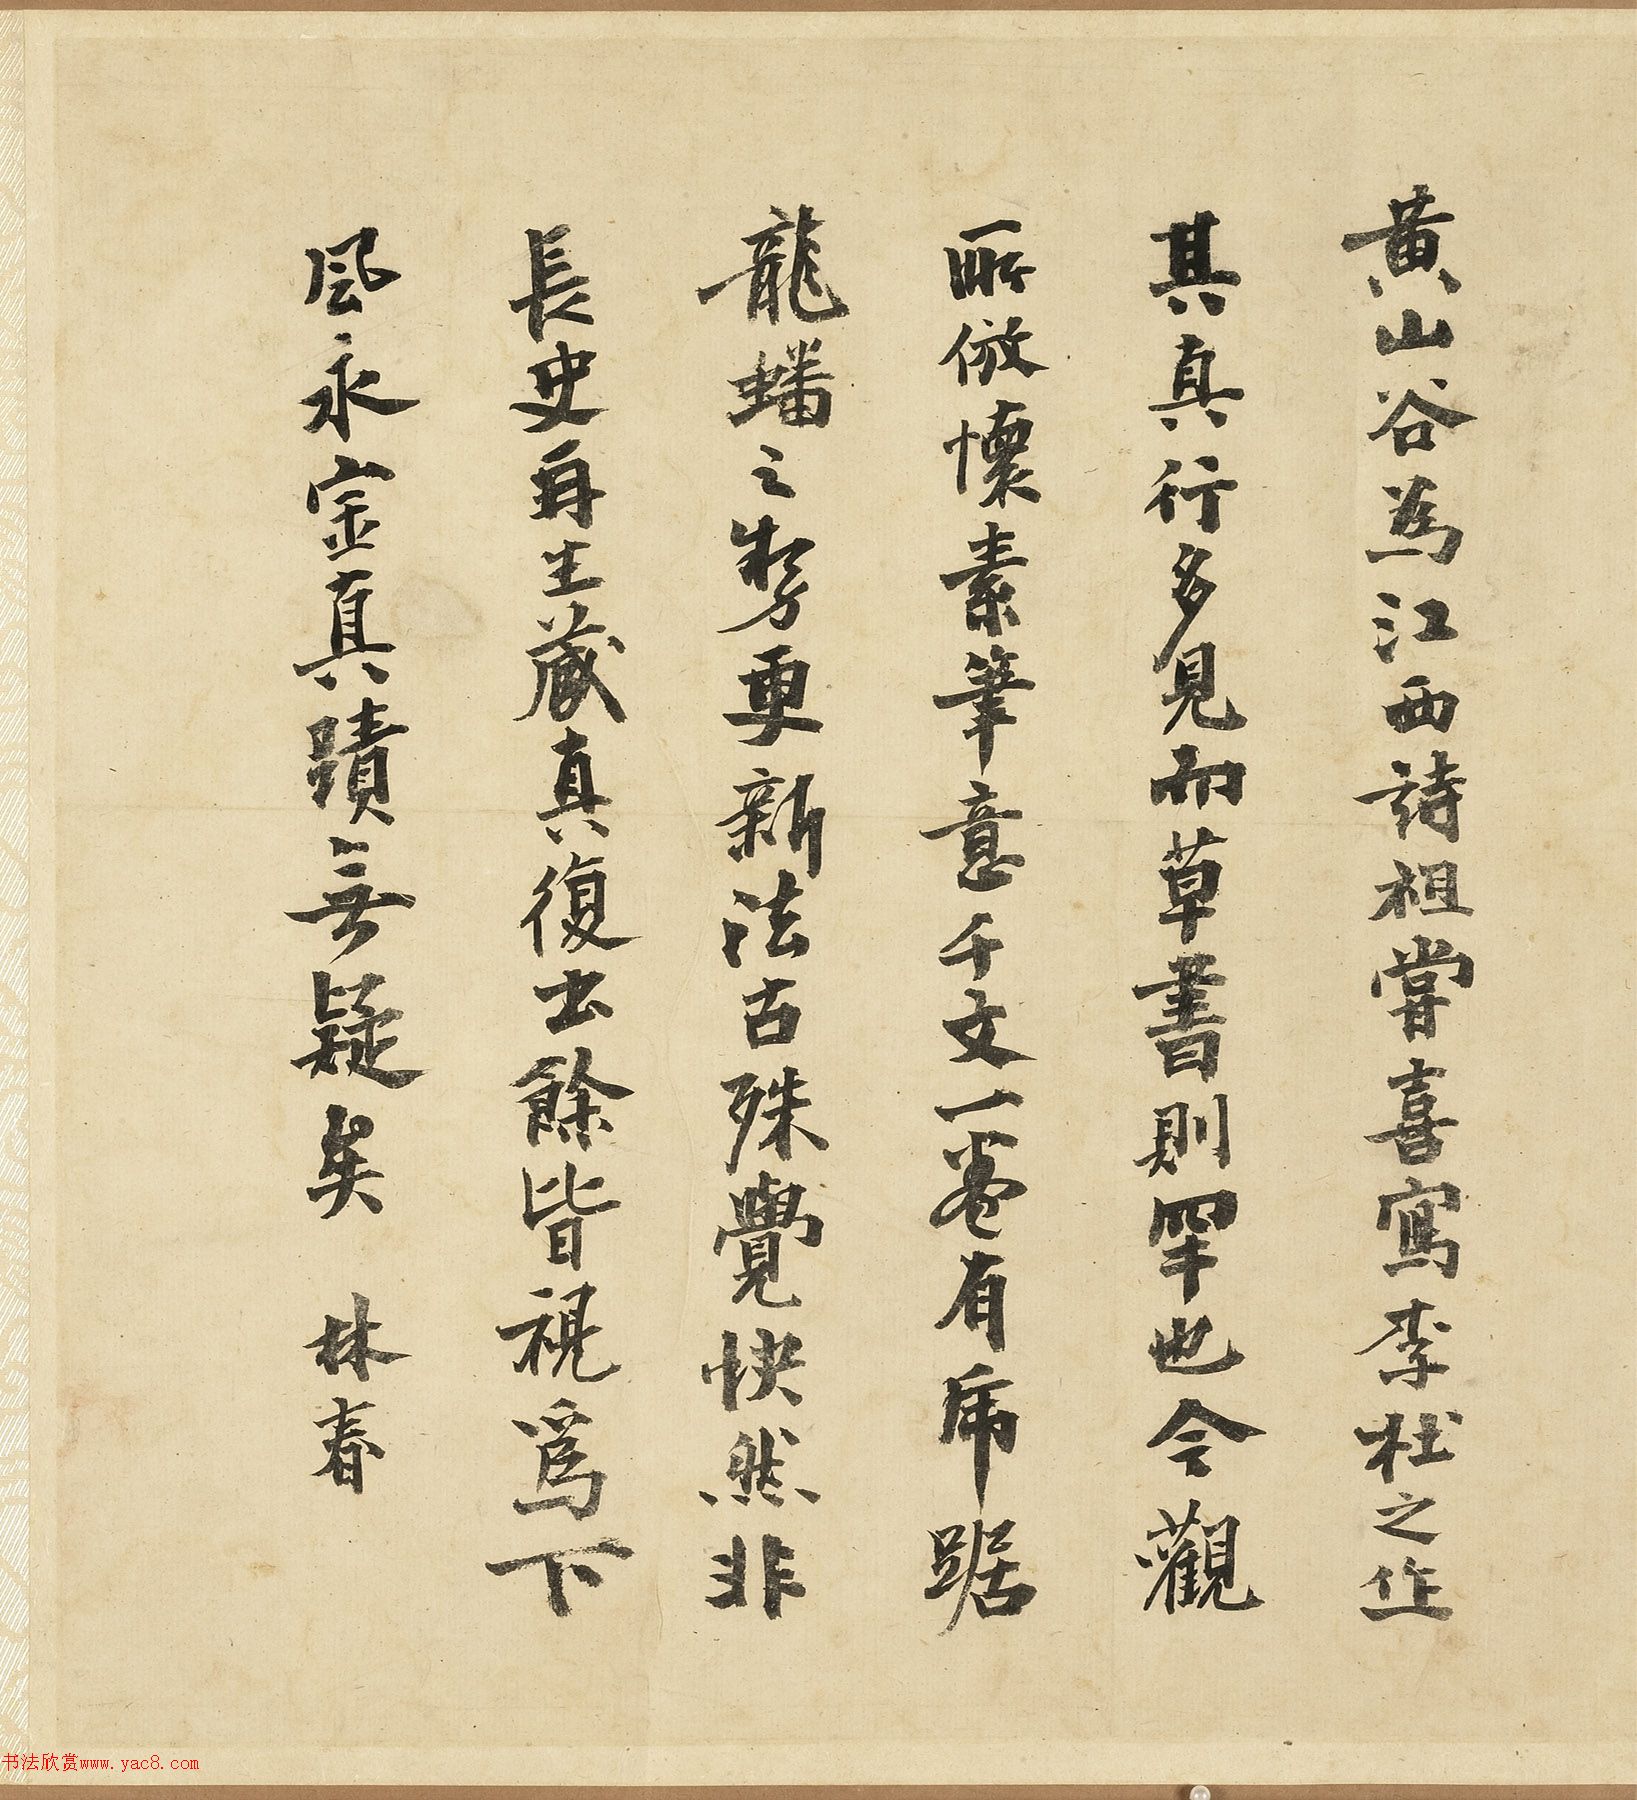 黄山谷為江西詩祖嘗喜寫李杜之作
其真行多見而草書則罕也今觀
所倣懷素筆意千文一卷有虎踞
龍蟠之勢更新法古殊覺快然非
長史再生藏真復出餘皆視爲下
風永寶真蹟無疑矣 林春
书法欣赏www.yac8.com